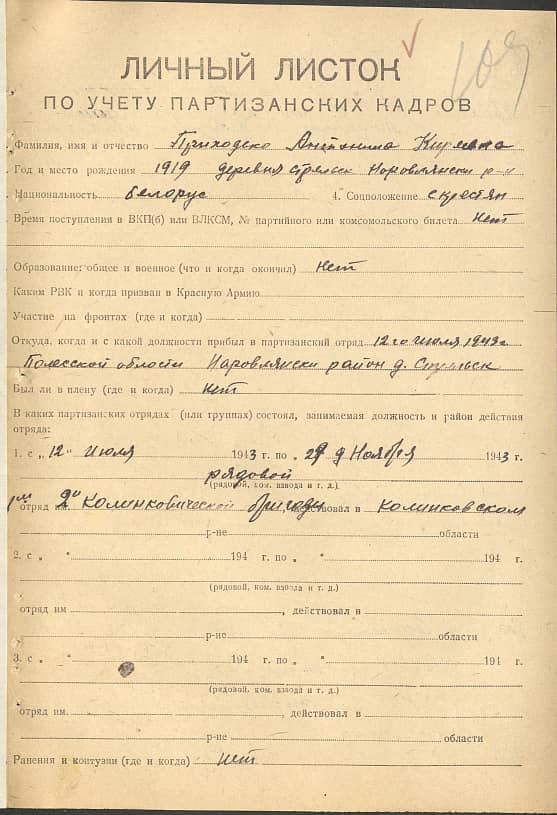 109
ЛИЧНЫЙ ЛИСТОК
ПО УЧЕТУ ПАРТИЗАНСКИХ КАДРОВ
Фамилия, имя и отчество Приходько
Год и место рождения 1919 деревня Стрельск Норовлянски р-н
Национальность белорус 4. Соцположение с крестян
Время поступления в ВКП(б) или ВЛКСМ, № партийного или комсомольского билета Нет
Образование: общее и военное (что и когда окончил) Нет
Каким РВК и когда призван в Красную Армию
Участие на фронтах (где и когда)
Откуда, когда и с какой должности прибыл в партизанский отряд 12го июля 1943г
Полесской области Наровлянски район д. Стрельск
Был ли в плену (где и когда) нет
В каких партизанских отрядах (или группах) состоял, занимаемая должность и район действия
отряда:
1. с „ 12" июля 1943 г. по „ 29 " Ноября 1943 г.
рядовой
(рядовой, ком. взвода и т. д.)
отряд им 2й Калинковической бригады, действовал в Калинковском
р-не области
2. с „ " 194 г. по „ " 194 г.
(рядовой, ком. взвода и т. д.)
отряд им , действовал в
р-не области
3. с „ " 194 г. по „ " 194 г.
(рядовой, ком. взвода и т. д.)
отряд им. , действовал в
р-не области
Ранения и контузии (где и когда) нет